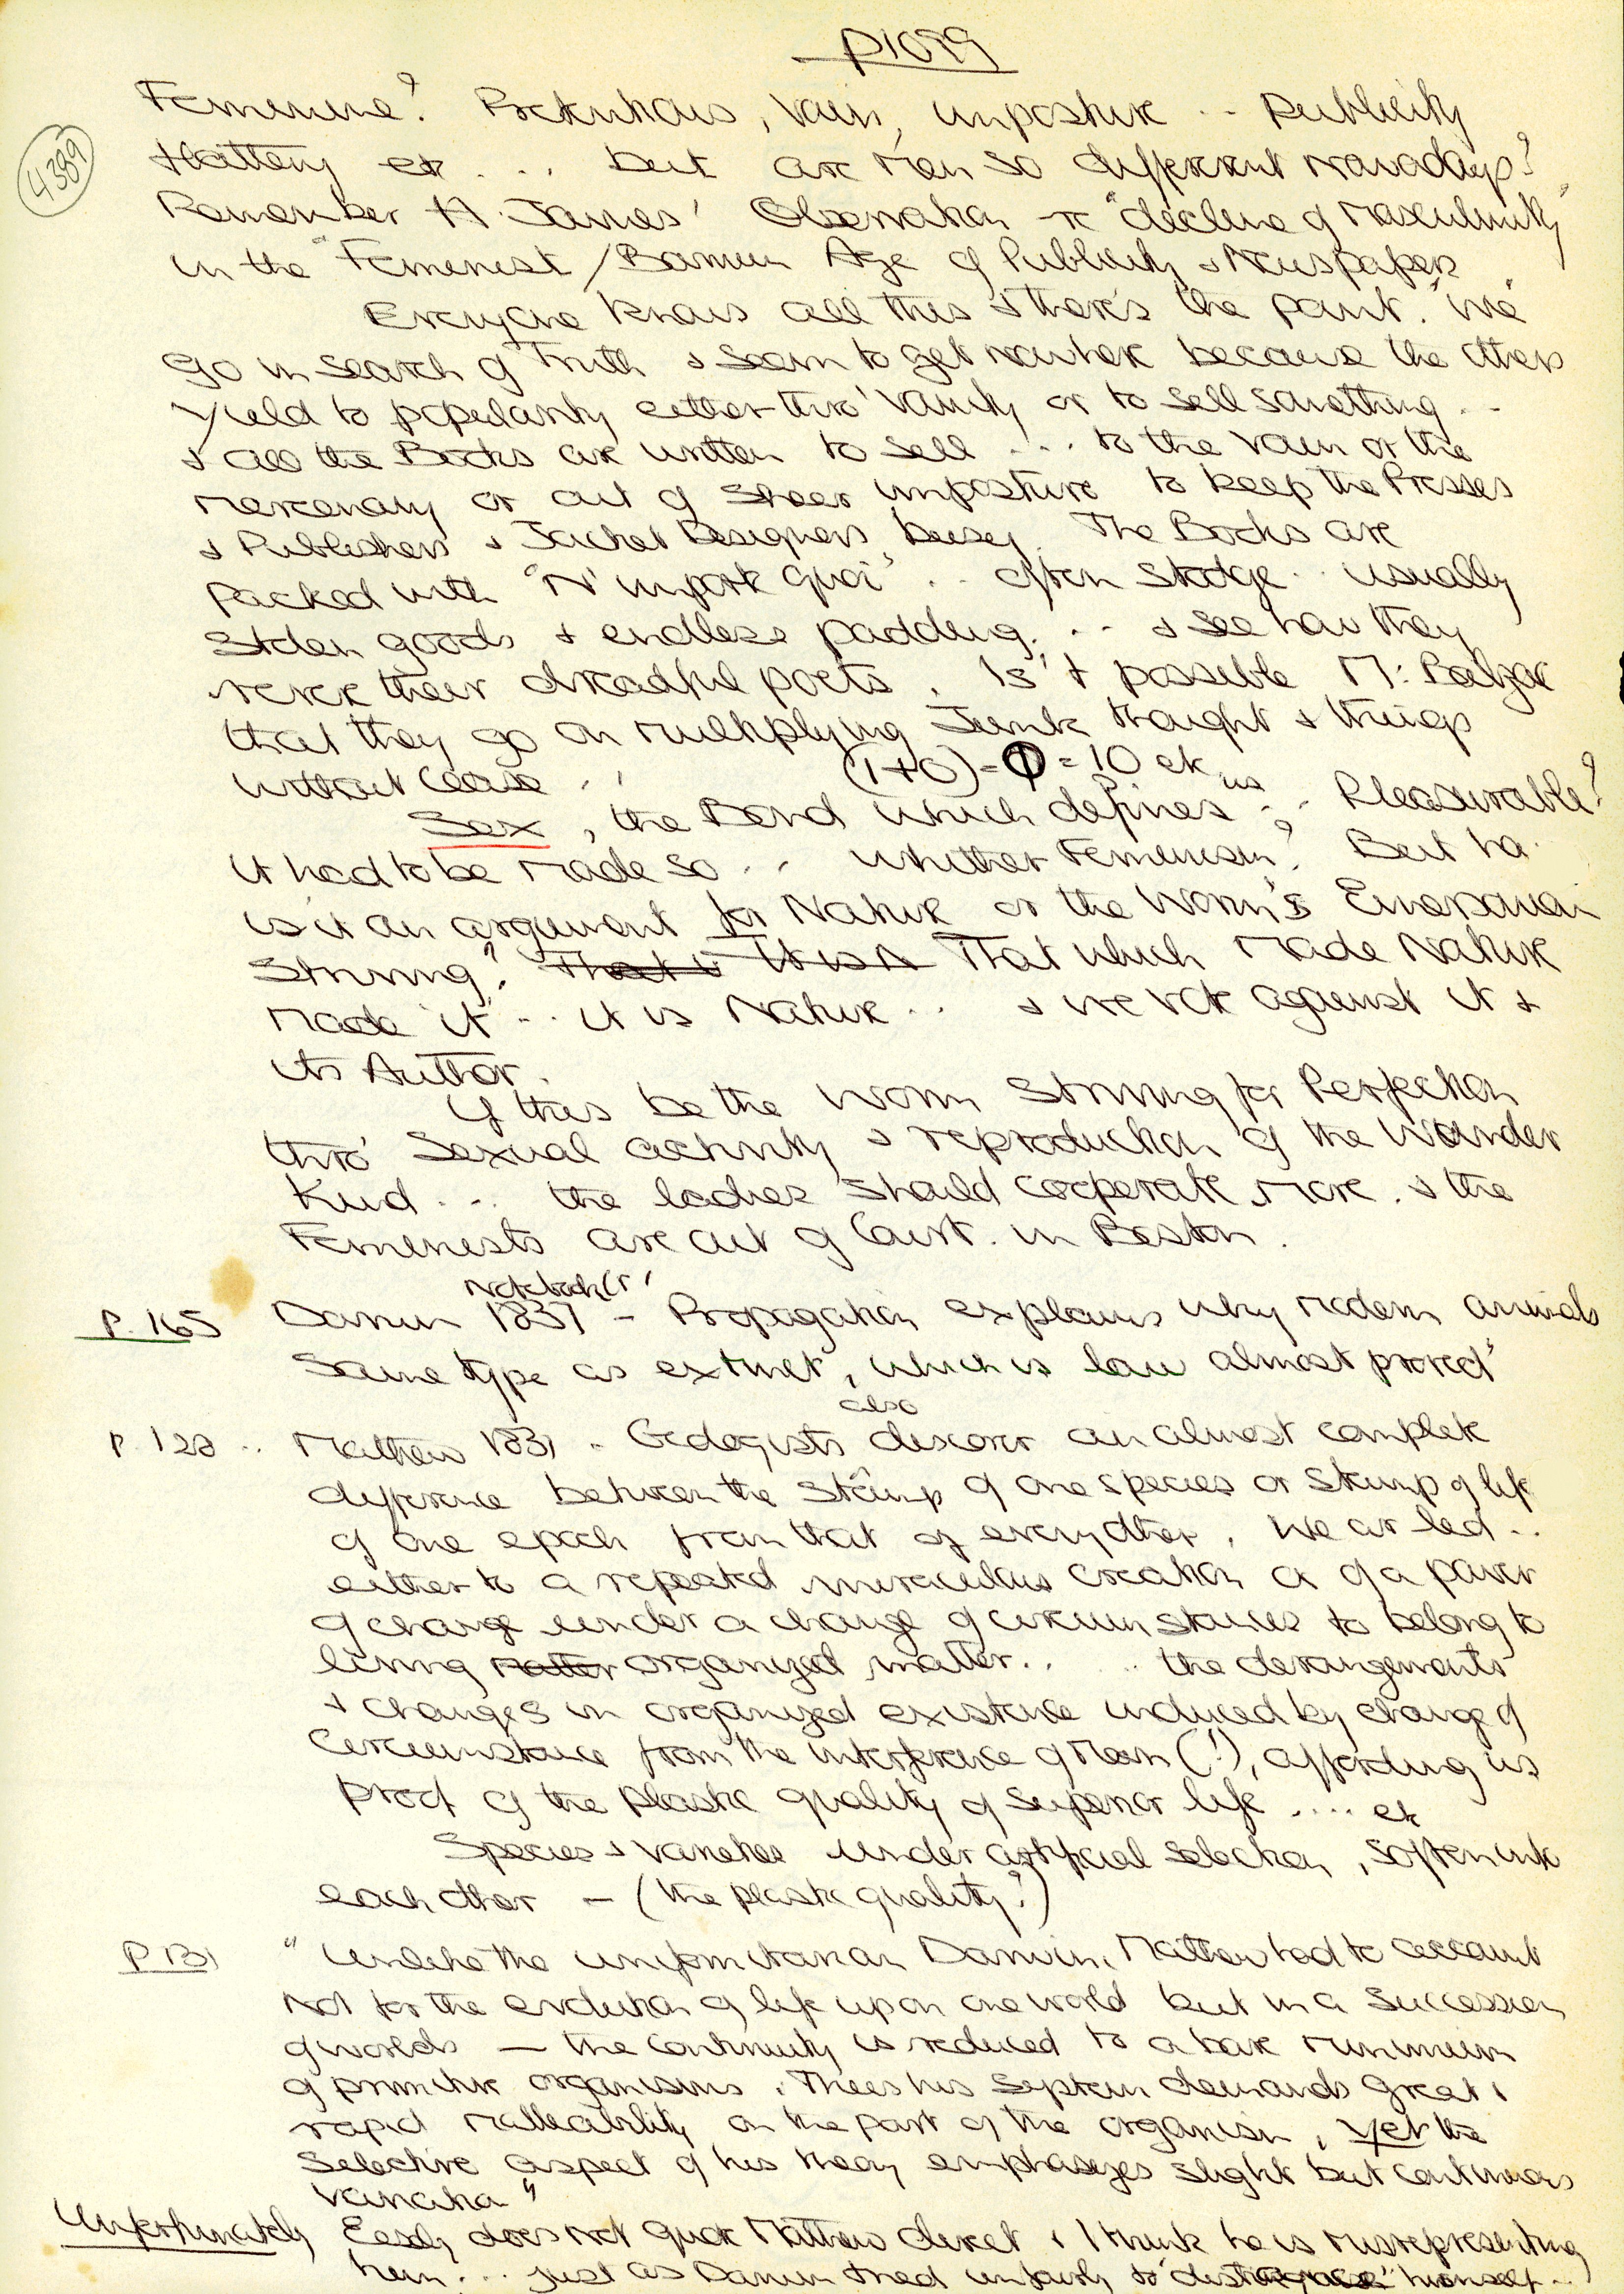 P1099
4389
Feminine? Pretentious, Vain, imposture .. Publicity
flattery etc ... but are Men so different Nowadays?
Remember H. James' Observation re "decline of Masculinity"
in the "Feminist / Barnum Age of Publicity & Newspapers"
Everyone knows all this & there's the point. We
go in search of Truth & seem to get nowhere because the others
yield to popularity either thro' Vanity or to sell something ..
& all the Books are written to sell ... to the Vain or the
Mercenary or out of sheer imposture to keep the Presses
& Publishers & Jacket Designers busy. The Books are
packed with "N'importe quoi" .. often Stodge .. usually
Stolen goods & endless padding. .. & see how they
revere their dreadful poets. Is't possible M: Balzac
that they go on multiplying Junk thought & things
without cease ..
(1+0) = Φ = 10 etc
Sex, the Bond which defines us .. Pleasurable?
it had to be made so .. whither Feminism? But ha.
is it an argument for Nature or the Worm's Emersonian
Striving? That is It is N That which Made Nature
Made it .. it is Nature .. & we vote against it &
its Author.
If this be the Worm Striving for Perfection
thro' Sexual activity & reproduction of the Wunder
Kind ... the ladies should cooperate more. & the
Feminists are out of Court. in Boston.
P. 165 Darwin 1837 Notebook (s' - Propagation explains why modern animals
same type as extinct, which is law almost proved"
P. 128 .. Matthew 1831 .. Geologists also discover an almost complete
difference between the Stamp of one species or stamp of life
of one epoch from that of every other. We are led ..
either to a repeated miraculous creation or of a power
of change under a change of circumstances to belong to
living Matter organized matter.. .. the derangements
& changes in organized existence induced by change of
Circumstance from the interference of Man (!), affording us
proof of the plastic quality of superior life .... etc
Species & varieties under artificial selection, soften into
each other - (the plastic quality?)
P 131 "Unlike the uniformitarian Darwin, Matthew had to account
not for the evolution of life upon one world but in a Succession
of worlds — the continuity is reduced to a bare minimum
of primitive organisms. Thus his system demands great &
rapid malleability on the part of the organism, yet the
Selective aspect of his theory emphasizes slight but continuous
variation"
Unfortunately Easly does not quote Matthew direct & I think he is misrepresenting
him ... just as Darwin tried unfairly to himself ..